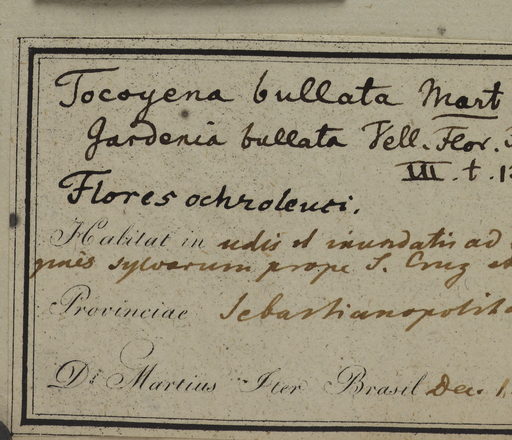 Tocoyena bullata Mart
Gardenia bullata Vell. Flor.
III. t. 1
Flores ochroleuci.
Habitat in udis et inundatis ad
sylvarum prope S. Cruz et
Provinciae Sebastianopolit
Dr. Martius Iter Brasil Dec. 1